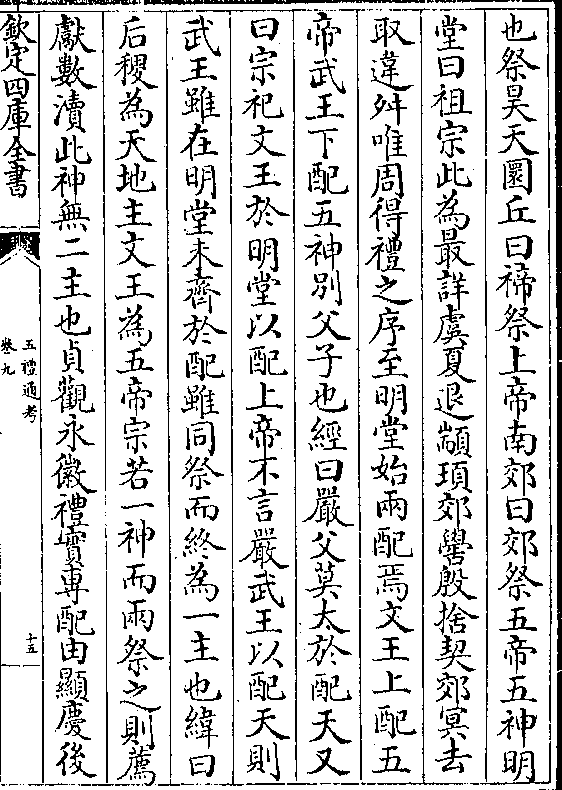 也祭昊天圜丘曰禘祭上帝南郊曰郊祭五帝五神明
堂曰祖宗此為最詳虞夏退顓頊郊嚳殷捨契郊冥去
取違舛唯周得禮之序至明堂始兩配焉文王上配五
帝武王下配五神別父子也經曰嚴父莫太於配天又
曰宗祀文王於明堂以配上帝不言嚴武王以配天則
武王雖在明堂未齊於配雖同祭而終為一主也緯曰
后稷為天地主文王為五帝宗若一神而兩祭之則薦
獻數瀆此神無二主也貞觀永徽禮實專配由顯慶後
欽定四庫全書
五禮通考
卷九
十五